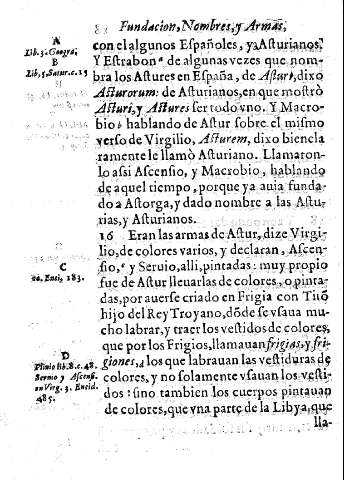 Fundacion, Nombres, y Armas,
A
Lib. 3. Geogra,
B
Lib, 5, Satur. c. 15
con el algunos Españoles, ya Asturianos.
Y Estrabonᵃ de algunas vezes que nom-
bra los Astures en España, de Asturi, dixo
Asturorum: de Asturianos, en que mostrò
Asturi, y Astures ser todo vno. Y Macro-
bioᵇ hablando de Astur sobre el mismo
verso de Virgilio, Asturem, dixo bien cla
ramente le llamò Asturiano. Llamaron-
lo assi Ascensio, y Macrobio, hablando
de aquel tiempo, porque ya auia funda-
do a Astorga, y dado nombre a las Astu
rias, y Asturianos.
16 Eran las armas de Astur, dize Virgi-
lio, de colores varios, y declaran, Ascen-
sio,ᶜ y Seruio, alli, pintadas: muy propio
fue de Astur lleuarlas de colores, o pinta-
das, por auerse criado en Frigia con Titō
hijo del Rey Troyano, dōde se vsaua mu-
cho labrar, y traer los vestidos de colores,
que por los Frigios, llamauan frigias, y fri-
giones,ᵈ a los que labrauan las vestiduras de
colores, y no solamente vsauan los vesti-
dos: sino tambien los cuerpos pintauan
de colores, que vna parte de la Libya, que
lla-
C
Enei, 183.
D
Plinio lib. 8. c. 48.
Seruio y Ascens.
en Virg. 3. Eneid.
485.